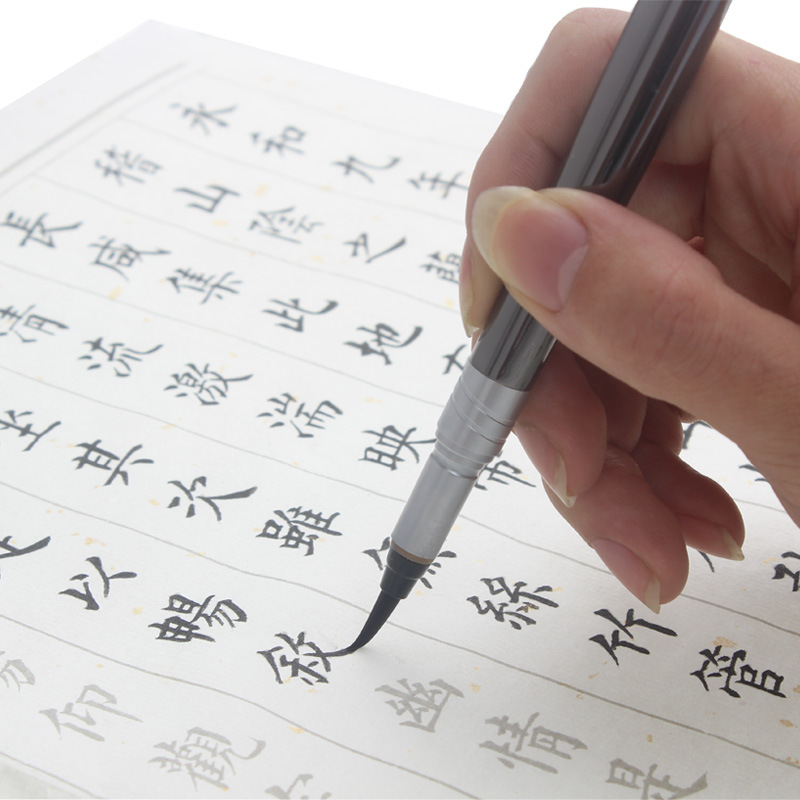 永和九年
稽山陰之
長咸集此地
清流激湍映
坐其次雖無絲竹管
足以暢敘幽情是
仰觀